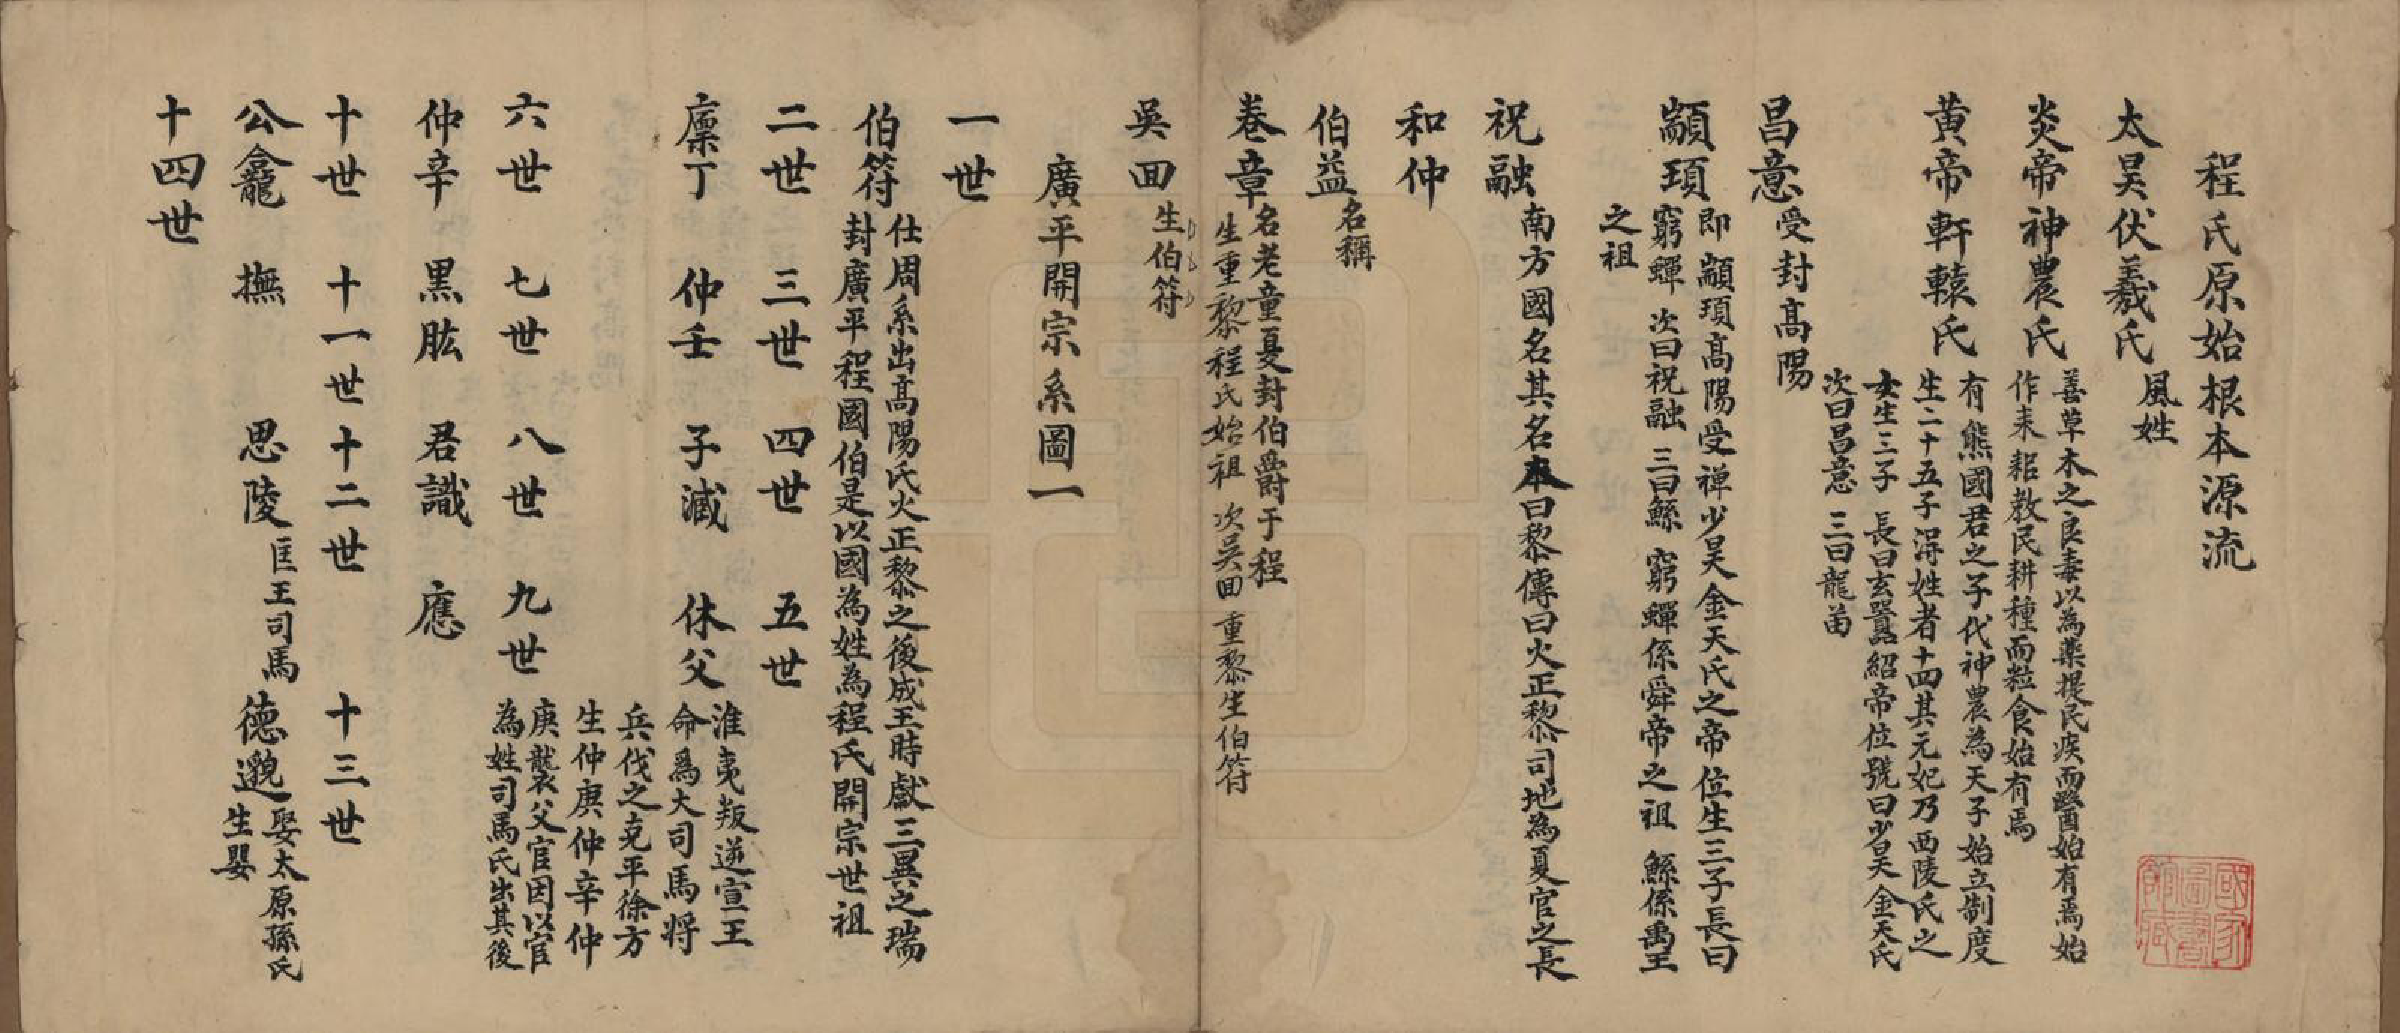 程氏原始根本源流
太昊伏羲氏風姓
炎帝神農氏善草木之良毒以為藥提民疾而醫始有焉始
作耒耜教民耕種而粒食始有焉
黃帝軒轅氏有熊國君之子代神農為天子始立制度
生二十五子得姓者十四其元妃乃西陵氏之
女生三子 長曰玄囂紹帝位號曰少昊金天氏
次曰昌意 三曰龍苗
昌意受封高陽
顓頊即顓頊高陽受禪少昊金天氏之帝位生三子長曰
窮蟬 次曰祝融 三曰鯀 窮蟬係舜帝之祖 鯀係禹王
之祖
祝融南方國名其名本曰黎傳曰火正黎司地為夏官之長
和仲
伯益名稱
卷章名老童夏封伯爵于程
生重黎程氏始祖 次吳回 重黎生伯符
吳回生伯符
廣平開宗系圖一
一世
伯符仕周系出高陽氏火正黎之後成王時獻三異之瑞
封廣平程國伯是以國為姓為程氏開宗世祖
二世 三世 四世 五世
廩丁 仲壬 子減 休父淮夷叛逆宣王
命為大司馬將
兵伐之克平徐方
生仲庚仲辛仲
六世 七世 八世 九世庚襲父官因以官
為姓司馬氏出其後
仲辛 黑肱 君識 應
十世 十一世 十二世 十三世
公龕 撫 思陵匡王司馬 德邈娶太原孫氏
生嬰
十四世